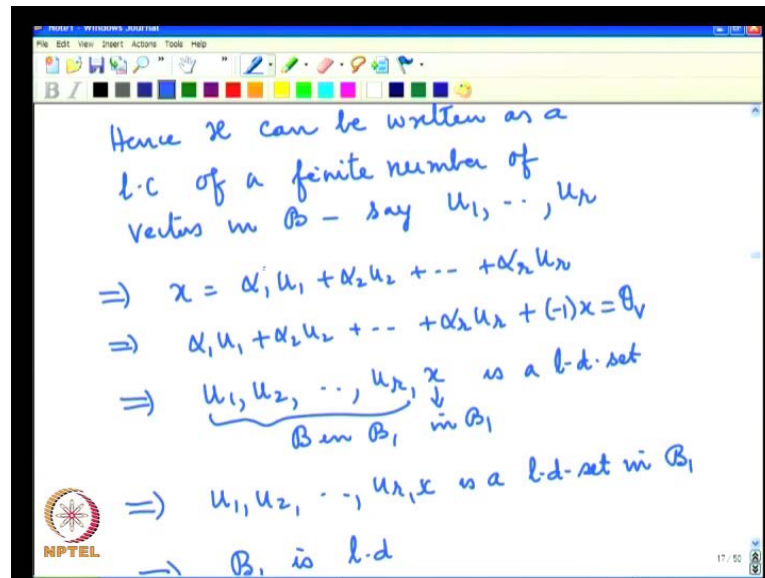 Note1 - Windows Journal
File Edit View Insert Actions Tools Help
B I
Hence x can be written as a
l.c of a finite number of
vectors in B - say u₁, .., uᵣ
⇒ x = α₁u₁ + α₂u₂ + -- + αᵣuᵣ
⇒ α₁u₁ + α₂u₂ + -- + αᵣuᵣ + (-1)x = θᵥ
⇒ u₁, u₂, .., uᵣ, x is a l.d. set
B in B₁ in B₁
⇒ u₁, u₂, .., uᵣ, x is a l.d-set in B₁
⇒ B₁ is l.d
NPTEL
17 / 50